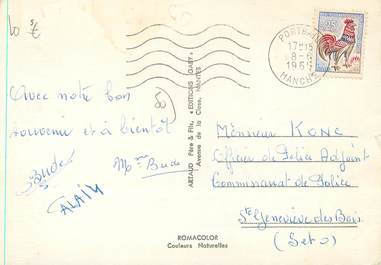 10
PORTBAIL
17H15
8-8
196
MANCHE
Avec notre bon
souvenir et à bientôt
Bude
Mme Bude
ALAIN
ARTAUD Père & Fils, "EDITIONS GABY"
Avenue de la Close, NANTES
ROMACOLOR
Couleurs Naturelles
Monsieur KONC
Officier de Police Adjoint
Commissariat de Police
Ste Geneviève des Bois
(Set O)